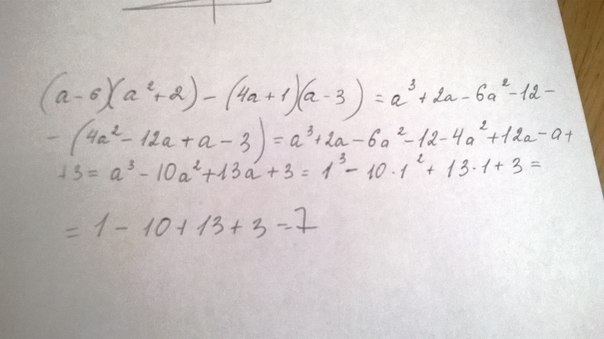 (a-6)(a²+2)-(4a+1)(a-3)=a³+2a-6a²-12-
-(4a²-12a+a-3)=a³+2a-6a²-12-4a²+12a-a+
+3=a³-10a²+13a+3=1³-10·1²+13·1+3=
=1-10+13+3=7